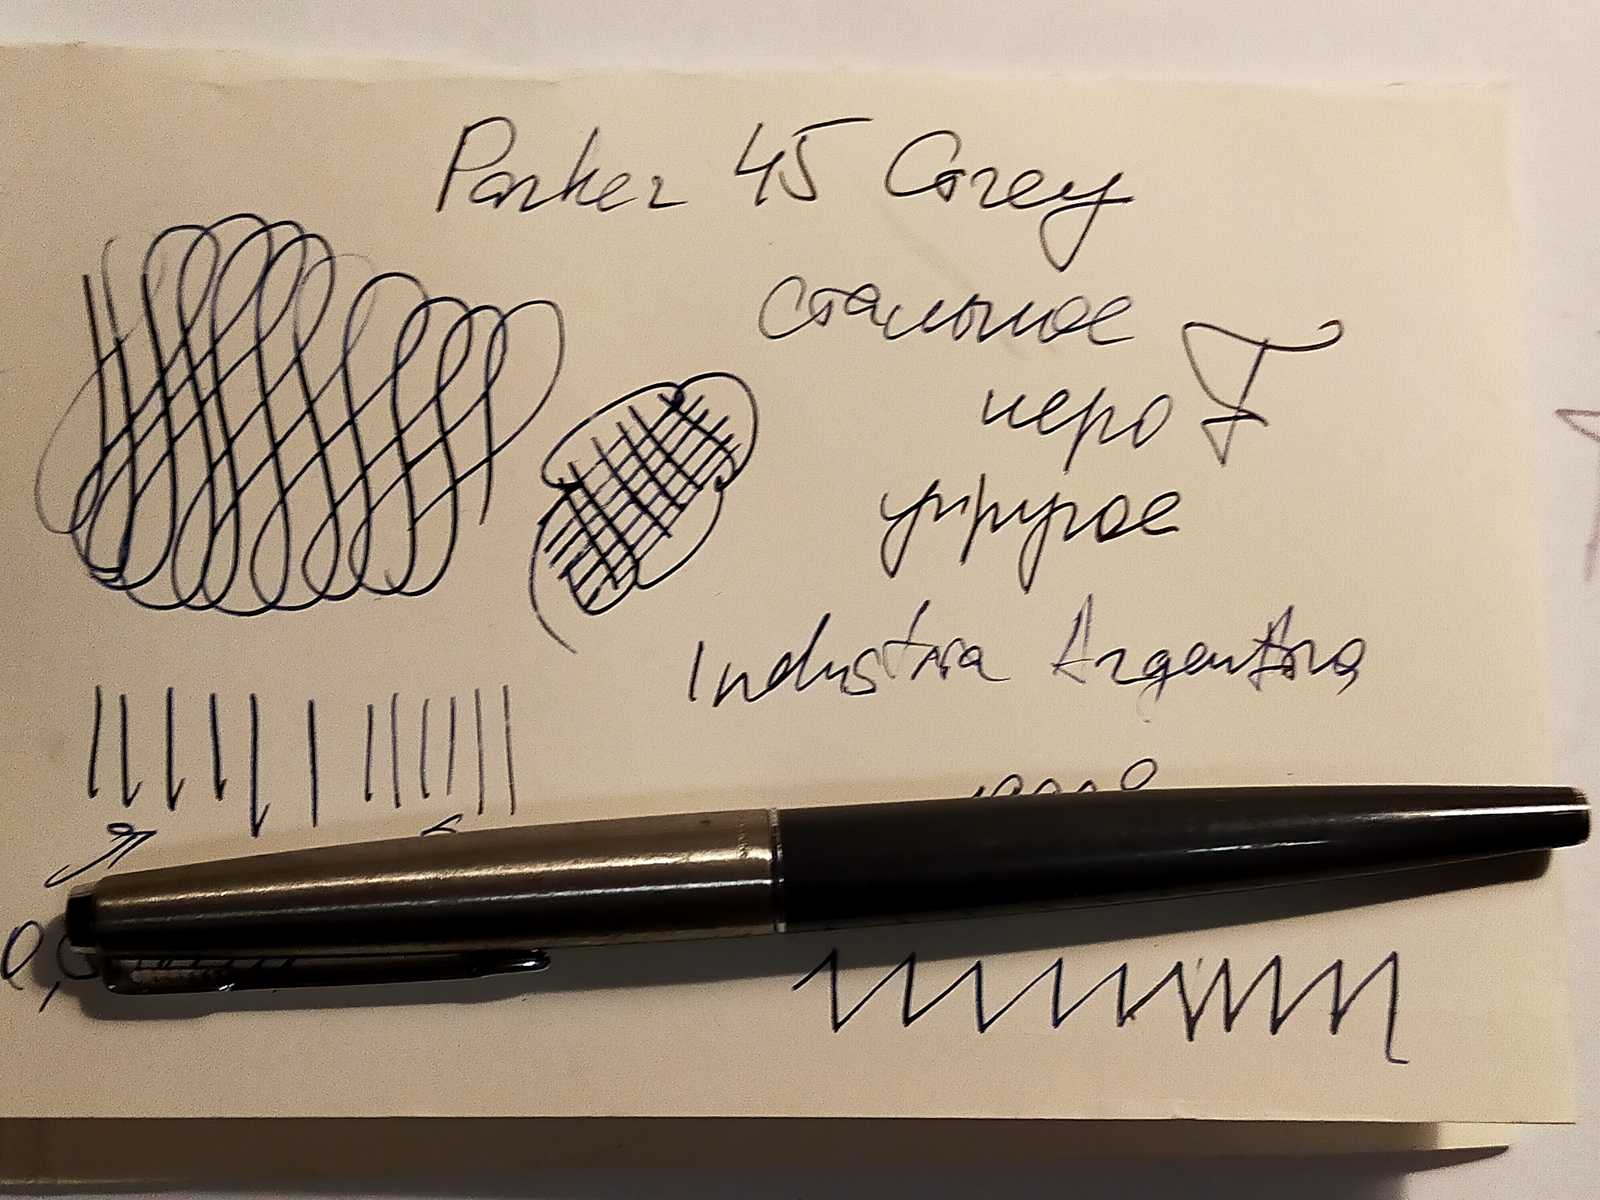 Parker 45 Grey
стальное
перо F
упругое
Industria Argentina